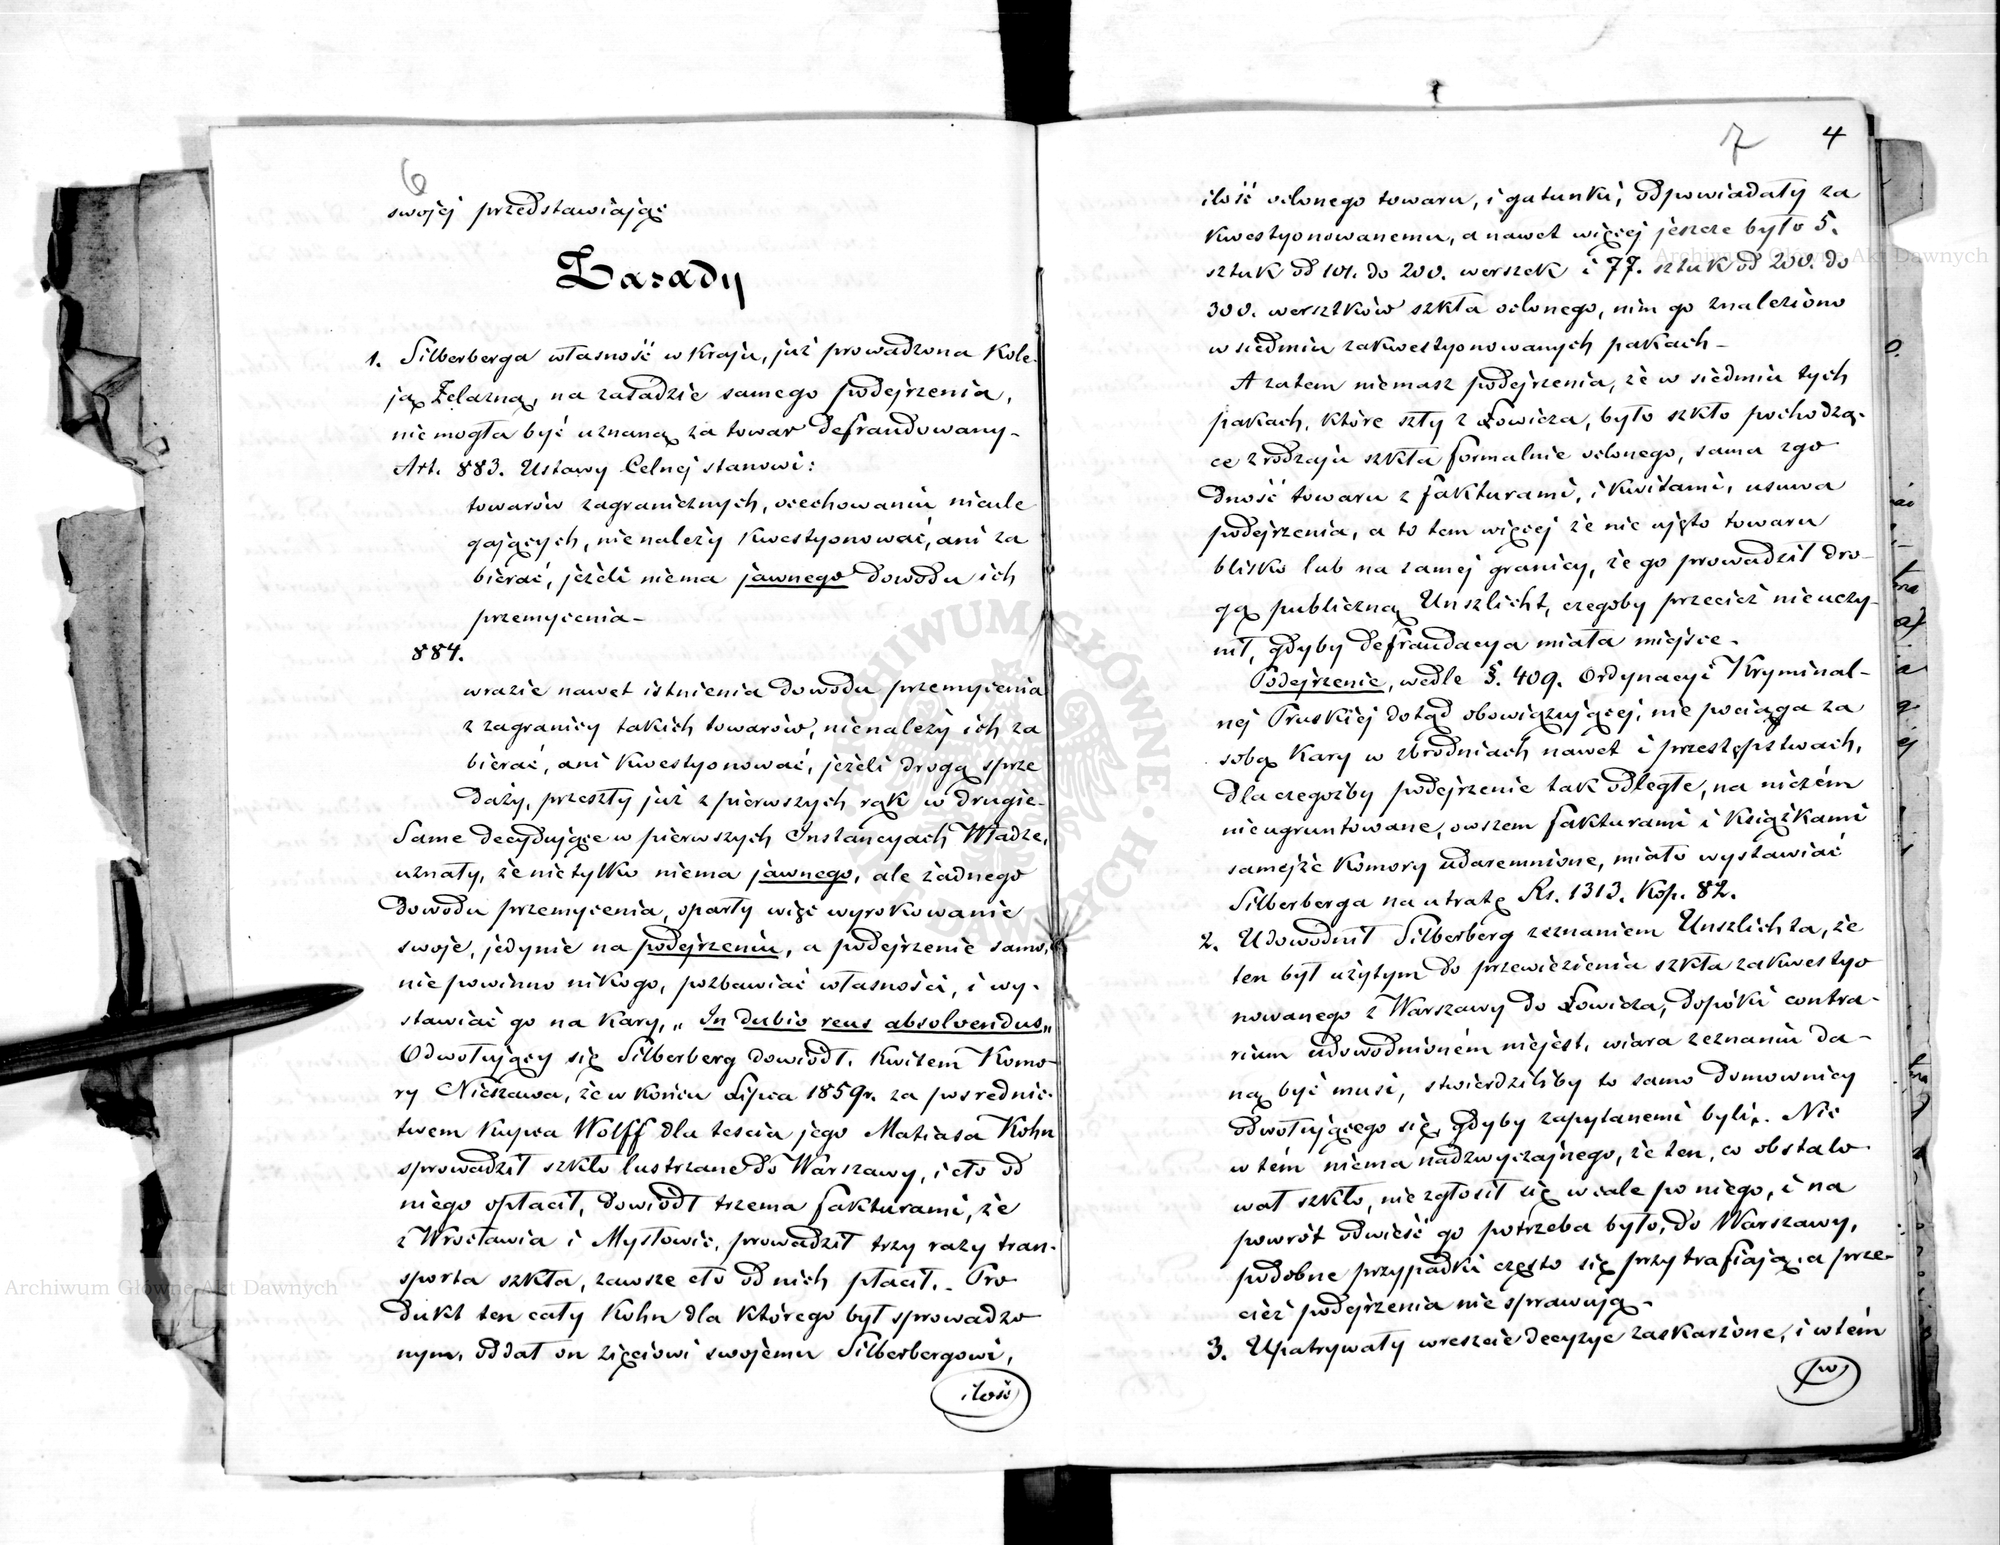 6
swojej przedstawiając
Zasady
1. Silberberga własność w kraju, już prowadzona Kole-
ją Żelazną, na zasadzie samego podejrzenia,
niemogła być uznaną za towar defraudowany-
Art. 883. Ustawy Celnej stanowi:
towarów zagranicznych, ocechowaniu nieule
gających, nienależy kwestyonować, ani za
bierać, jeżeli niema jawnego dowodu ich
przemycenia-
884.
w razie nawet istnienia dowodu przemycenia
z zagranicy takich towarów, nienależy ich za
bierać, ani kwestyonować, jeżeli drogą sprze
daży, przeszły już z pierwszych rąk w drugie-
Same decydujące w pierwszych Instancyach Władze,
uznały, że nietylko niema jawnego, ale żadnego
dowodu przemycenia, oparły więc wyrokowanie
swoje, jedynie na podejrzeniu, a podejrzenie samo,
niepowinno nikogo, pozbawiać własności, i wy-
stawiać go na kary, „In dubio reus absolvendus„
Odwołujący się Silberberg dowiódł, kwitem Komo-
ry Nieszawa, że w końcu Lipca 1859r. za pośrednic-
twem kupca Wolff dla teścia jego Matiasa Kohn
sprowadził szkło lustrzane do Warszawy, i cło od
niego opłacił, dowiódł trzema fakturami, że
z Wrocławia i Mysłowic, prowadził trzy razy tran-
sporta szkła, zawsze cło od nich płacił.- Pro
dukt ten cały Kohn dla którego był sprowadzo
nym, oddał on zięciowi swojemu Silberbergowi,
ilość
7 4
ilość oclonego towaru, i gatunki, odpowiadały za
kwestyonowanemu, a nawet więcej jeszcze było 5.
sztuk od 101. do 200. werszek i 77. sztuk od 200. do
300. werszków szkła oclonego, nim go znaleziono
w siedmiu zakwestyonowanych pakach-
A zatem niemasz podejrzenia, że w siedmiu tych
pakach, które szły z Łowicza, było szkło pochodzą-
ce z rodzaju szkła formalnie oclonego, sama zgo
dność towaru z fakturami, i kwitami, usuwa
podejrzenia, a to tem więcej że nie ujęto towaru
blisko lub na samej granicy, że go prowadził dro-
gą publiczną Unszlicht, czegoby przecież nieuczy-
nił, gdyby defraudacya miała miejsce-
Podejrzenie, wedle §. 409. Ordynacyi Kryminal-
nej Pruskiej dotąd obowiązującej, nie pociąga za
sobą kary w zbrodniach nawet i przestępstwach,
dla czegożby podejrzenie tak odległe, na niczém
nieugruntowane, owszem fakturami i książkami
samejże Komory udaremnione, miało wystawiać
Silberberga na utratę Rs. 1313. Kop. 82.
2. Udowodnił Silberberg zeznaniem Unszlichta, że
ten był użytym do przewiezienia szkła zakwestyo
nowanego z Warszawy do Łowicza, dopóki contra-
rium udowodnioném niejest, wiara zeznaniu da-
ną być musi, stwierdziliby to samo domownicy
odwołującego się, gdyby zapytanemi byli,- Nic
w tém niema nadzwyczajnego, że ten, co obstalo
wał szkło, nie zgłosił się wcale po niego, i na
powrót odwieść go potrzeba było, do Warszawy,
podobne przypadki często się przytrafiają, a prze-
cież podejrzenia nie sprawują-
3. Upatrywały wreszcie decyzye zaskarżone, i w tém
po
Archiwum Główne Akt Dawnych
Archiwum Główne Akt Dawnych
ARCHIWUM GŁÓWNE AKT DAWNYCH